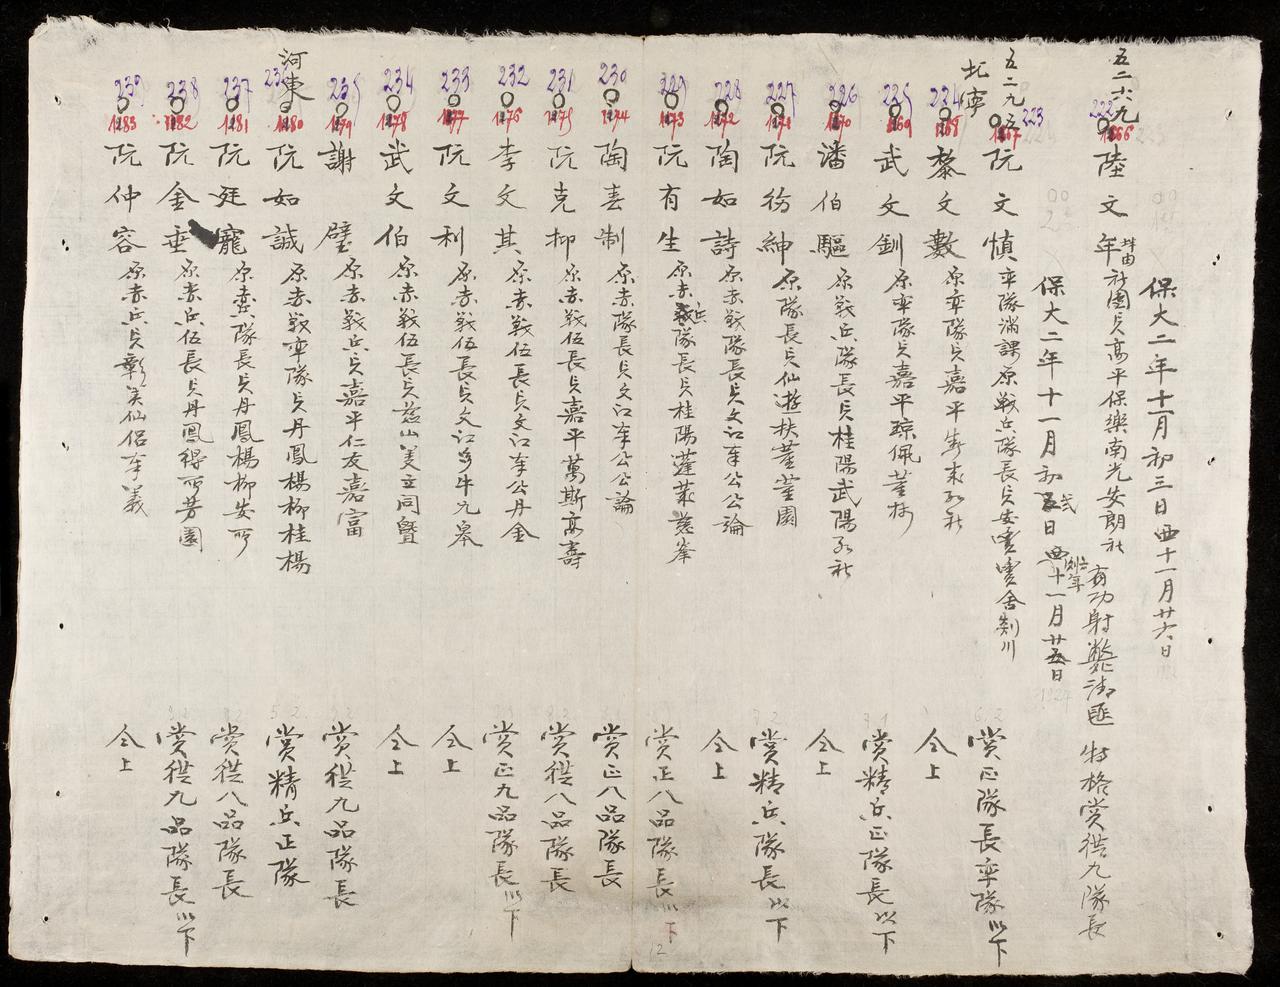 保大二年十一月初三日 西十一月廿六日
五二六九
222
1166
陸文年 社團兵高平保樂南光安朗社 有功射斃法匪 特格赏從九隊長
223
保大二年十一月初弍日 西十一月廿五日
五二九五
北寧
1167
阮文慎 率隊滿課原戰兵隊長兵 赏正隊長率隊以下
224
1168
黎文數 原率隊兵嘉平 仝上
225
1169
武文釧 原率隊兵嘉平琼佩 赏精兵正隊長以下
226
1170
潘伯驅 原戰兵隊長兵桂陽武陽 仝上
227
1171
阮紳 原隊長兵仙遊扶董董園 赏精兵隊長以下
228
1172
陶如詩 原赤戰隊長兵文江奉公公論 仝上
229
1173
阮有生 原赤兵隊長兵桂陽蓬萊慈峯 赏正八品隊長以下
230
1174
陶春制 原赤隊長兵文江奉公公論 赏正八品隊長
231
1175
阮克柳 原赤戰伍長兵嘉平萬斯高壽 赏從八品隊長
232
1176
李文其 原赤戰伍長兵文江奉公丹金 赏正九品隊長以下
233
1177
阮文利 原赤戰伍長兵文江多牛九皋 仝上
234
1178
武文伯 原赤戰伍長兵慈山美立同暨 仝上
235
1179
謝璧 原赤戰兵兵嘉平仁友嘉富 赏從九品隊長
河東
236
1180
阮如誠 原赤戰率隊兵丹鳳楊柳桂楊 赏精兵正隊
237
1181
阮廷寵 隊長兵丹鳳楊柳安所 赏從八品隊長
238
1182
阮金垂 原赤兵伍長兵丹鳳得所芳園 赏從九品隊長以下
239
1183
阮仲容 原赤兵兵彰美仙侶奉義 仝上
12